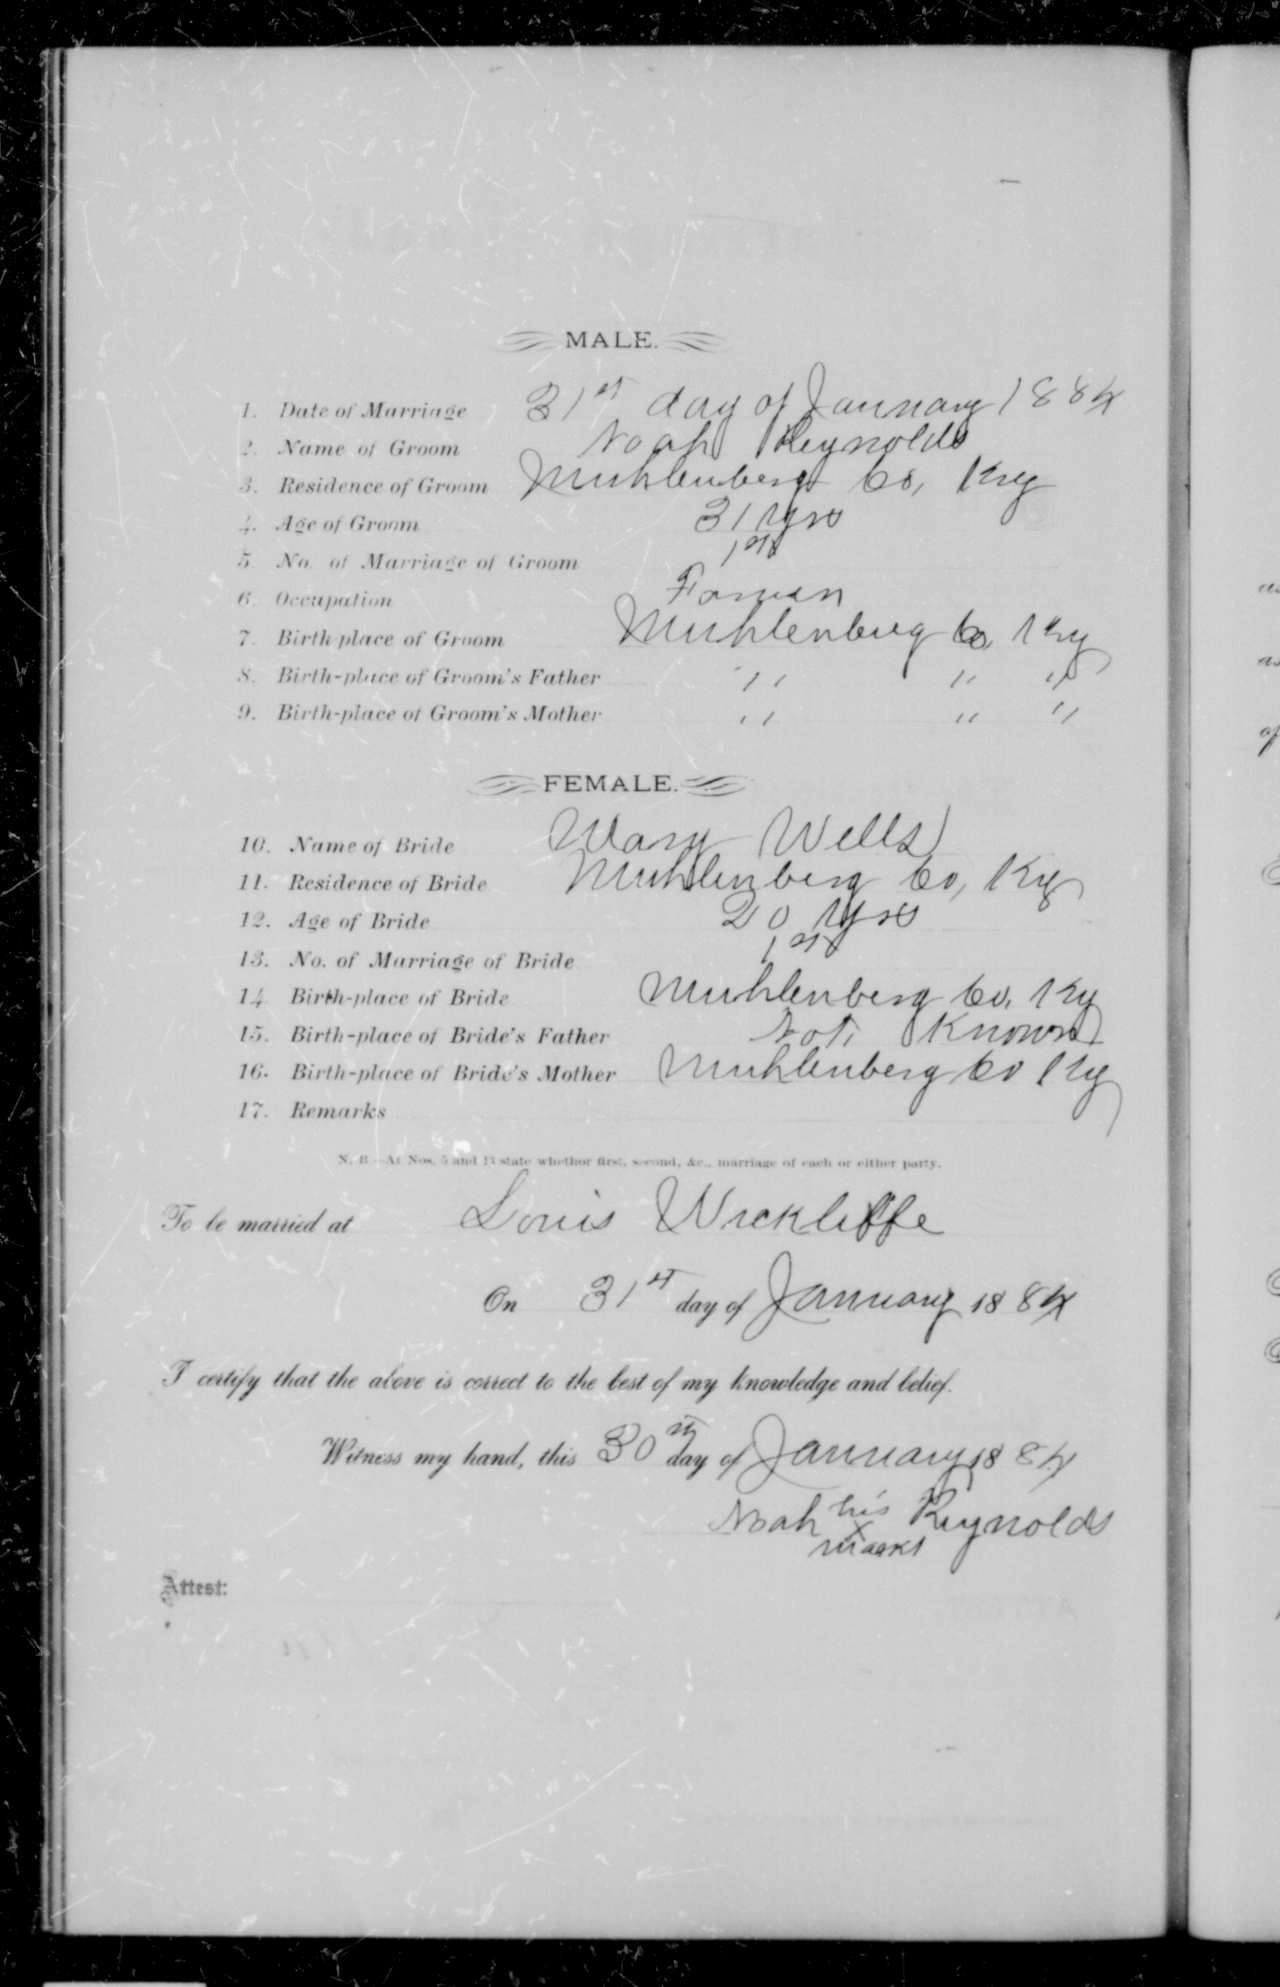 MALE.
1. Date of Marriage 31st day of January 1884
2. Name of Groom Noah Reynolds
3. Residence of Groom Muhlenberg Co, Ky
4. Age of Groom 31 Yrs
5. No. of Marriage of Groom 1st
6. Occupation Farmer
7. Birth-place of Groom Muhlenberg Co, Ky
8. Birth-place of Groom's Father " " "
9. Birth-place of Groom's Mother " " "
FEMALE.
10. Name of Bride Mary Wells
11. Residence of Bride Muhlenberg Co, Ky
12. Age of Bride 20 Yrs
13. No. of Marriage of Bride 1st
14. Birth-place of Bride Muhlenberg Co, Ky
15. Birth-place of Bride's Father Not Known
16. Birth-place of Bride's Mother Muhlenberg Co Ky
17. Remarks
N. B.—At Nos. 5 and 13 state whether first, second, &c., marriage of each or either party.
To be married at Louis Wickliffe
On 31st day of January 1884
I certify that the above is correct to the best of my knowledge and belief.
Witness my hand, this 30th day of January 1884
Noah his Reynolds
x
mark
Attest: